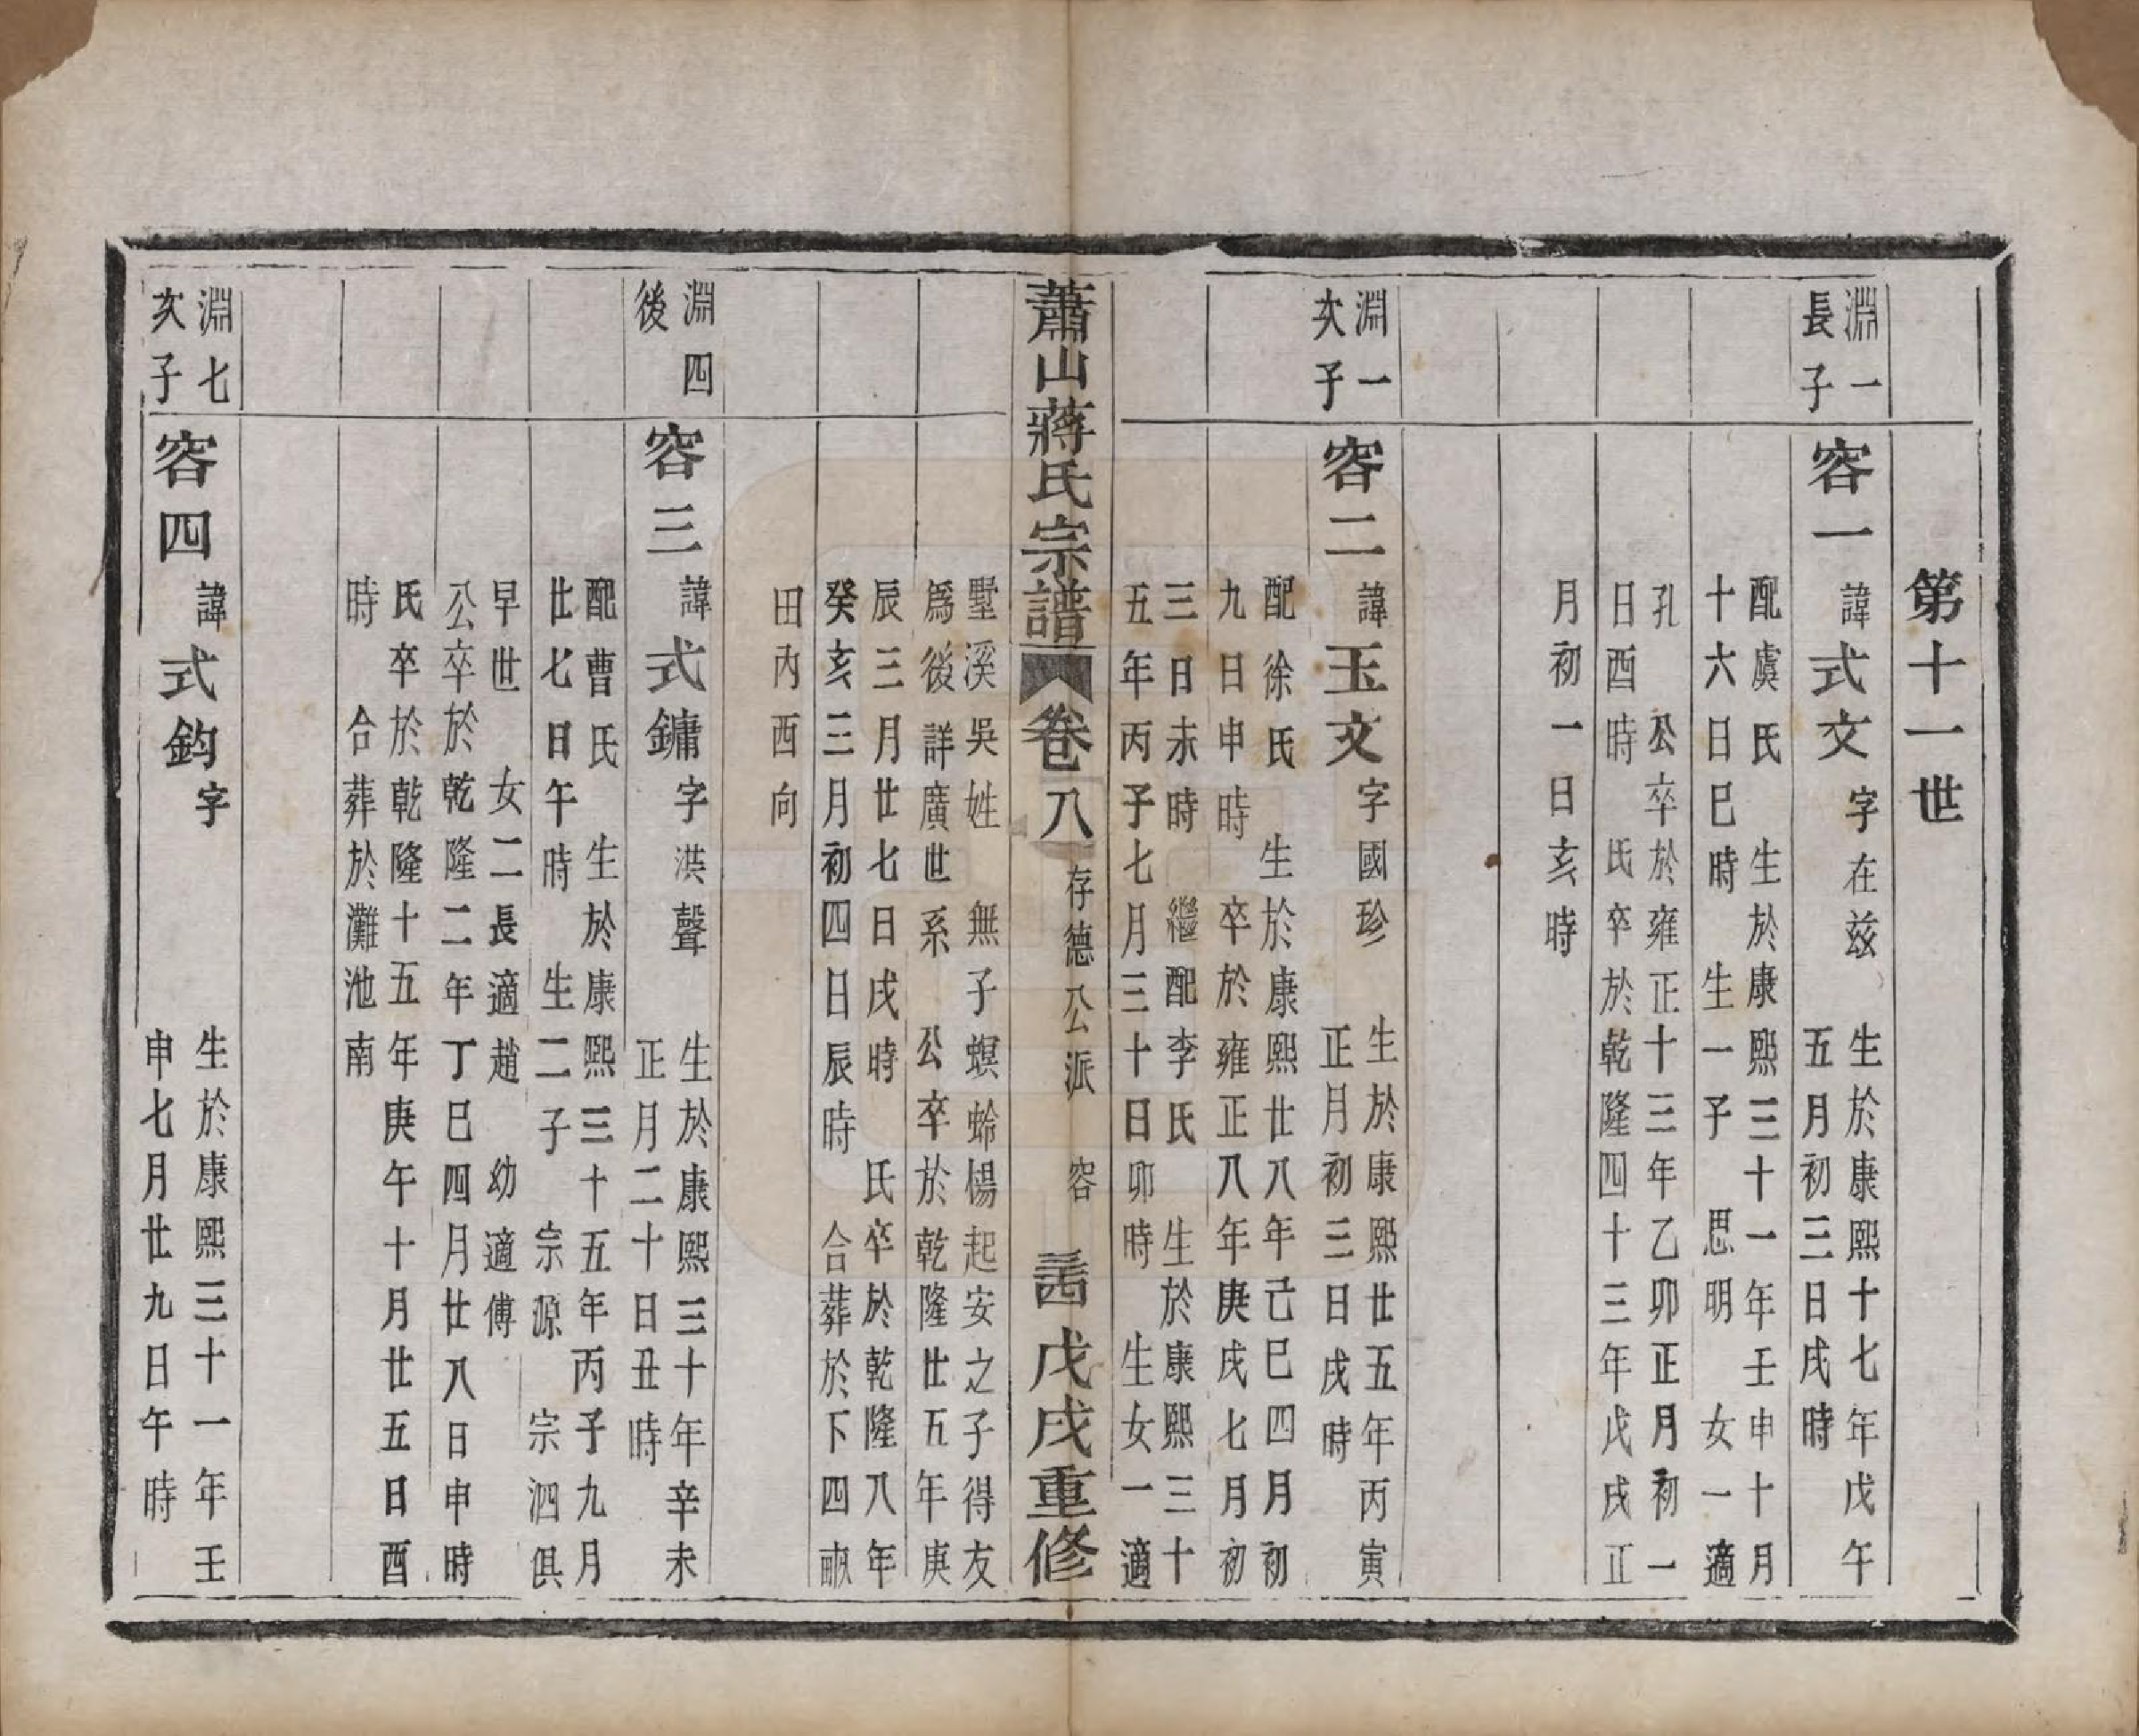 第十一世
淵一
長子
容一
諱式文字在玆
生於康熙十七年戊午
五月初三日戌時
配虞氏 生於康熙三十一年壬申十月
十六日巳時 生一子 思明 女一適
孔 公卒於雍正十三年乙卯正月初一
日酉時 氏卒於乾隆四十三年戊戌正
月初一日亥時
淵一
次子
容二
諱玉文字國珍
生於康熙廿五年丙寅
正月初三日戌時
配徐氏 生於康熙廿八年己巳四月初
九日申時 卒於雍正八年庚戌七月初
三日未時 繼配李氏 生於康熙三十
五年丙子七月三十日卯時 生女一適
蕭山蔣氏宗譜 卷八 存德公派 容 戊戌重修
墅溪吳姓 無子螟蛉楊起安之子得友
爲後詳廣世系 公卒於乾隆廿五年庚
辰三月廿七日戌時 氏卒於乾隆八年
癸亥三月初四日辰時 合葬於下四畝
田內西向
淵四
後
容三
諱式鏞字洪聲
生於康熙三十年辛未
正月二十日丑時
配曹氏 生於康熙三十五年丙子九月
廿七日午時 生二子 宗源 宗泗俱
早世 女二長適趙 幼適傅
公卒於乾隆二年丁巳四月廿八日申時
氏卒於乾隆十五年庚午十月廿五日酉
時 合葬於灘池南
淵七
次子
容四
諱式鈞字
生於康熙三十一年壬
申七月廿九日午時